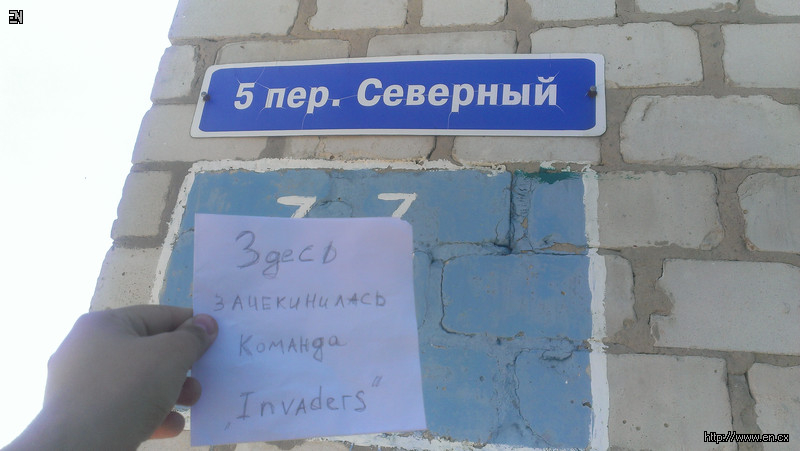 EN
5 пер. Северный
Здесь
зачекинилась
команда
„Invaders"
http://www.en.cx